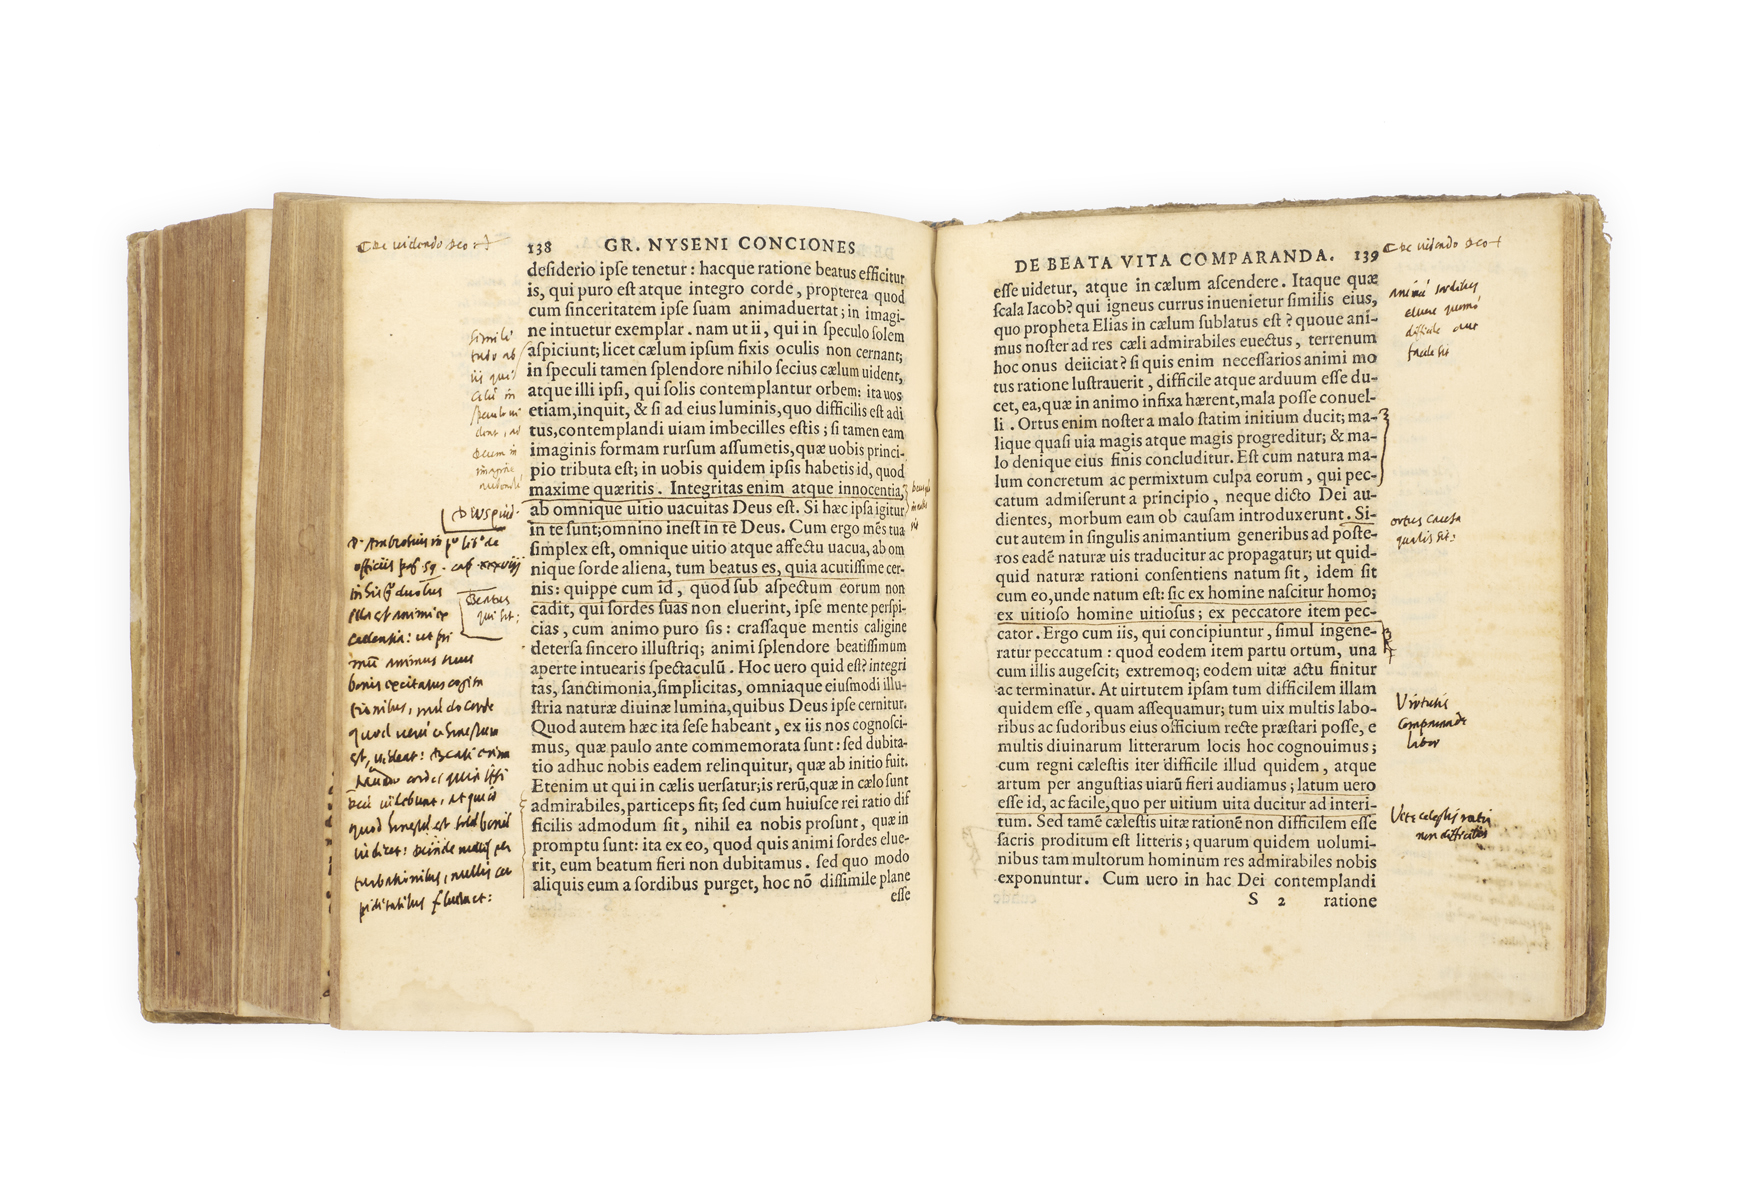 De uidendo Deo
138 GR. NYSENI CONCIONES
desiderio ipse tenetur: hacque ratione beatus efficitur
is, qui puro est atque integro corde, propterea quod
cum sinceritatem ipse suam animaduertat; in imagi-
ne intuetur exemplar. nam ut ii, qui in speculo solem
aspiciunt; licet cælum ipsum fixis oculis non cernant;
in speculi tamen splendore nihilo secius cælum uident,
atque illi ipsi, qui solis contemplantur orbem: ita uos
etiam, inquit, & si ad eius luminis, quo difficilis est adi
tus, contemplandi uiam imbecilles estis; si tamen eam
imaginis formam rursum assumetis, quæ uobis princi-
pio tributa est; in uobis quidem ipsis habetis id, quod
maxime quæritis. Integritas enim atque innocentia,
ab omnique uitio uacuitas Deus est. Si hæc ipsa igitur
in te sunt; omnino inest in tē Deus. Cum ergo mēs tua
simplex est, omnique uitio atque affectu uacua, ab om
nique sorde aliena, tum beatus es, quia acutissime cer-
nis: quippe cum id, quod sub aspectum eorum non
cadit, qui sordes suas non eluerint, ipse mente perspi-
cias, cum animo puro sis: crassaque mentis caligine
detersa sincero illustriq; animi splendore beatissimum
aperte intuearis spectaculū. Hoc uero quid est? integri
tas, sanctimonia, simplicitas, omniaque eiusmodi illu-
stria naturæ diuinæ lumina, quibus Deus ipse cernitur.
Quod autem hæc ita sese habeant, ex iis nos cognosci-
mus, quæ paulo ante commemorata sunt: sed dubita-
tio adhuc nobis eadem relinquitur, quæ ab initio fuit.
Etenim ut qui in cælis uersatur; is rerū, quæ in cælo sunt
admirabiles, particeps fit; sed cum huiusce rei ratio dif
ficilis admodum sit, nihil ea nobis prosunt, quæ in
promptu sunt: ita ex eo, quod quis animi sordes elue-
rit, eum beatum fieri non dubitamus. sed quo modo
aliquis eum a sordibus purget, hoc nō dissimile plane
esse
Simili
tudo ab
speculo
Deum in
Beatus
qui sit:
D. Ambrosius in
officiis
est animi ex
cellentia: ut pri
mū animus
bonis excitatus cogita
tionibus, mundo corde
quod uerū
est, uideat: Beati enim
mundo corde, quia ipsi
Deū uidebunt, atque id
quod honestū est solū bonū
iudicet: Deinde nullis per
turbationibus, nullis cu
piditatibus fluctuet:
DE BEATA VITA COMPARANDA. 139
De uidendo Deo
esse uidetur, atque in cælum ascendere. Itaque quæ
scala Iacob? qui igneus currus inuenietur similis eius,
quo propheta Elias in cælum sublatus est? quoue ani-
mus noster ad res cæli admirabiles euectus, terrenum
hoc onus deiiciat? si quis enim necessarios animi mo
tus ratione lustrauerit, difficile atque arduum esse du-
cet, ea, quæ in animo infixa hærent, mala posse conuel-
li. Ortus enim noster a malo statim initium ducit; ma-
lique quasi uia magis atque magis progreditur; & ma-
lo denique eius finis concluditur. Est cum natura ma-
lum concretum ac permixtum culpa eorum, qui pec-
catum admiserunt a principio, neque dicto Dei au-
dientes, morbum eam ob causam introduxerunt. Si-
cut autem in singulis animantium generibus ad poste-
ros eadē naturæ uis traducitur ac propagatur; ut quid-
quid naturæ rationi consentiens natum sit, idem sit
cum eo, unde natum est: sic ex homine nascitur homo;
ex uitioso homine uitiosus; ex peccatore item pec-
cator. Ergo cum iis, qui concipiuntur, simul ingene-
ratur peccatum: quod eodem item partu ortum, una
cum illis augescit; extremoq; eodem uitæ actu finitur
ac terminatur. At uirtutem ipsam tum difficilem illam
quidem esse, quam assequamur; tum uix multis labo-
ribus ac sudoribus eius officium recte præstari posse, e
multis diuinarum litterarum locis hoc cognouimus;
cum regni cælestis iter difficile illud quidem, atque
artum per angustias uiarū fieri audiamus; latum uero
esse id, ac facile, quo per uitium uita ducitur ad interi-
tum. Sed tamē cælestis uitæ rationē non difficilem esse
sacris proditum est litteris; quarum quidem uolumi-
nibus tam multorum hominum res admirabiles nobis
exponuntur. Cum uero in hac Dei contemplandi
S 2 ratione
Animi sordibus
difficile aut
facile sit
ortus causa
qualis sit:
Virtutis
comparandæ
labor
Vitæ celestis ratio
non difficilis